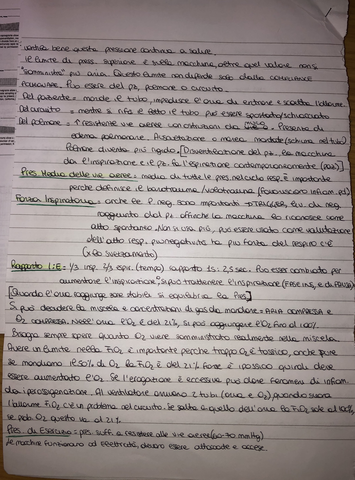 ventila bene questa pressione continua a salire.
il limite di press. superiore è nella macchina, oltre quel valore non si
"somministra" più aria. Questo limite non dipende solo dalla
polmonare. Può essere del pz, polmone o circuito.
Del paziente = morde il tubo, impedisce l'aria di entrare e scatta l'allarme.
Del circuito = mentre si rifà il letto il tubo può essere spostato/schiacciato
Del polmone = ↑ resistenze vie aeree. Presenza di
edema polmonare. Auscultazione
Polmone diventa più rigido. [Disventilazione del pz. la macchina
dà l'inspirazione e il pz fa l'espirazione contemporaneamente]
Press Media delle vie aeree = media di tutte le press nel ciclo resp. è importante
perché definisce il barotrauma/volotrauma (favoriscono infiam.
Forza Inspiratoria: anche le P. neg. sono importanti →TRIGGER, è la P. neg.
raggiunto dal pz affinché la macchina lo riconosce come
atto spontaneo. Non si usa più, può essere usato come valutazione
dell'atto resp. più negatività ha più forza del respiro c'è
(x lo svezzamento)
Rapporto I:E = 1/3 insp. 2/3 espir. (tempo) rapporto 1s: 2,5 sec. Può esser cambiato per
aumentare l'inspirazione, si può trattenere l'inspirazione (FASE INS. e di PAUSA)
[Quando l'aria raggiunge zone stabili si equilibra la Press]
Si può decidere la miscela e concentrazioni di gas da mandare = ARIA COMPRESSA E
O2 COMPRESSO. Nell'aria l'O2 è del 21%, si può aggiungere l'O2 fino al 100%.
Bisogna sempre sapere quanto O2 viene somministrato realmente nella miscela.
Avere un limite nella FiO2 è importante perché troppo O2 è tossico, anche pure
se mandiamo il 50% di O2 la FiO2 è del 21% forse è ipossico quindi deve
essere aumentato l'O2. Se l'erogazione è eccessiva può dare fenomeni di infiam.
da iperossigenazione. Al ventilatore arrivano 2 tubi (aria e O2) quando suona
l'allarme FiO2 c'è un problema nel circuito. Se salta è quello dell'aria la FiO2 sale al 100%,
se sarà O2 quello va al 21%
Press. di Esercizio = press. suff. a resistere alle vie aeree (60-70 mmHg)
Le macchine funzionano ad Elettricità, devono essere attaccate e accese.